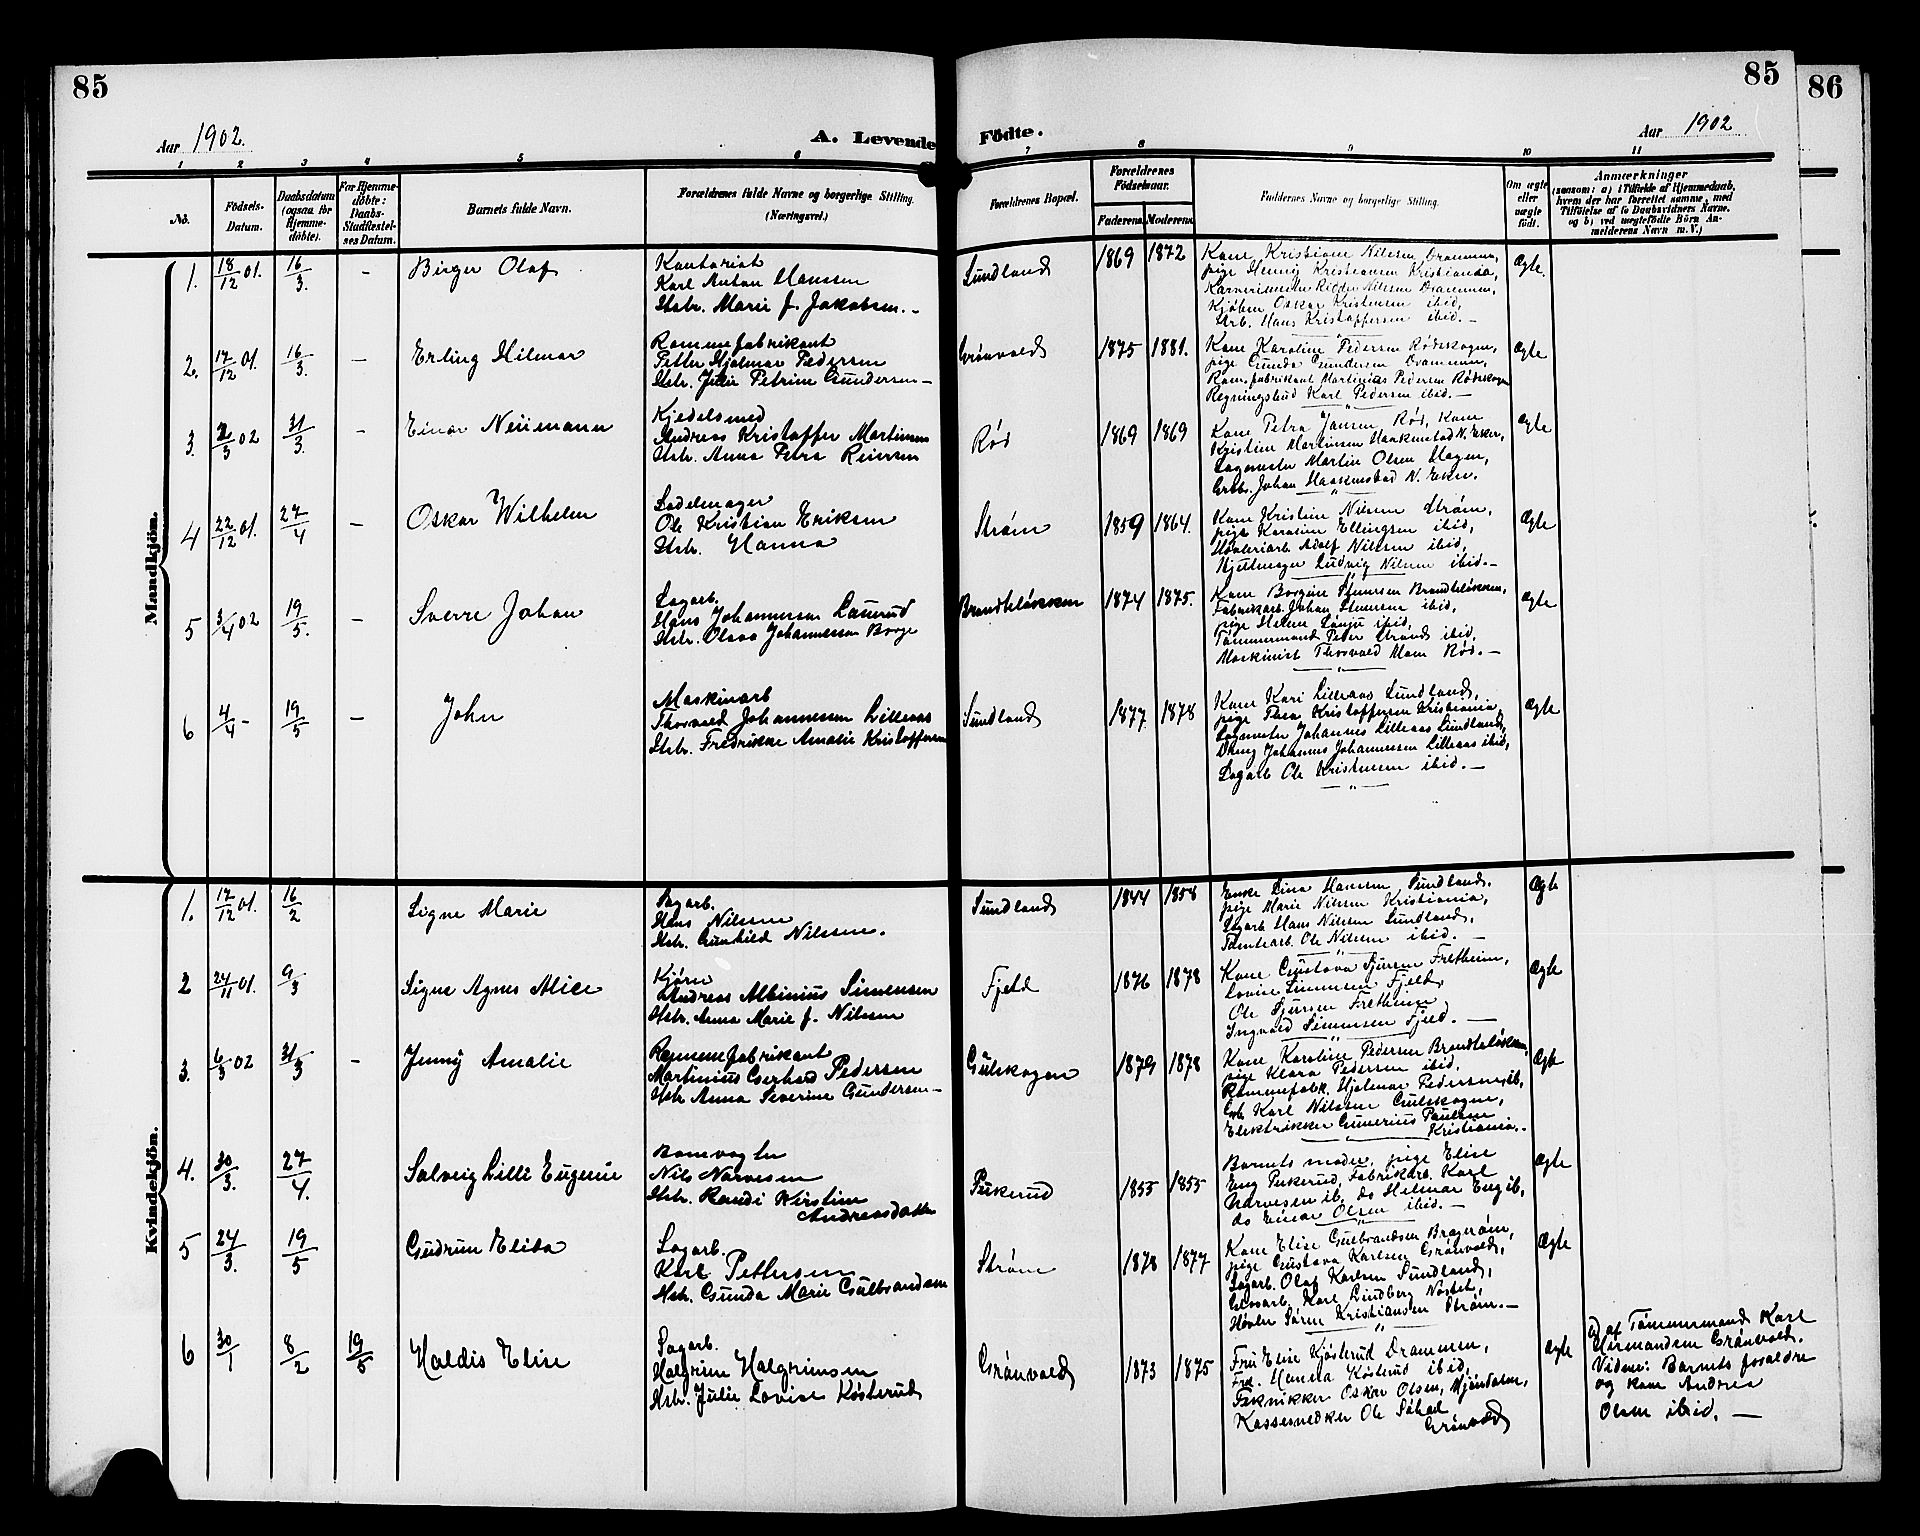 85
85
86
Aar 1902.
A. Levende Födte.
Aar 1902
1 2 3 4 5 6 7 8 9 10 11
No.
Födsels-Datum.
Daabsdatum (ogsaa for Hjemmedöbte).
For Hjemmedöbte: Daabs-Stadfestelses Datum.
Barnets fulde Navn.
Forældrenes fulde Navne og borgerlige Stilling.
(Næringsvei.)
Forældrenes Bopæl.
Forældrenes Födselsaar.
Faderens.
Moderens.
Faddernes Navne og borgerlige Stilling.
Om ægte eller uægte født.
Anmærkninger
(saasom: a) i Tilfælde af Hjemmedaab,
hvem der har forrettet samme, med
Tilföielse af to Daabsvidners Navne.
og b) ved uægtefödte Börn An-
melderens Navn m. V.)
Mandkjön.
1. 18/12 01. 16/3. - Birger Olaf
Kontorist
Karl Anton Hanssen
Hstr. Marie J. Jakobsen. -
Sundland 1869 1872
Kone Kristiane Nilsen Drammen,
pige Henny Kristiansen Kristiania,
Nilsen Drammen,
Kjøbm Oskar Kristensen ibid,
Arb. Hans Kristoffersen ibid. -
Ægte.
2. 17/12 01. 16/3. - Erling Hilmar
Rammefabrikant
Petter Hjalmar Pedersen
Hstr. Julie Petrine Gundersen -
Grønvold 1875 1881.
Kone Karoline Pedersen Rødskogen,
pige Gunda Gundersen Drammen,
Ram. fabrikant Martinius Pedersen Rødskogen
Regningsbud Karl Pedersen ibid. -
Ægte
3. 2/3 02 31/3. - Einar Neumann
Kjedelsmed
Andreas Kristoffer Martinsen
Hstr. Anna Petra Reiersen
Rød 1869 1869
Kone Petra Jansen Rød, Kone
Kristine Martinsen Haakenstad N. Eker,
Sagmester Martin Olsen Hagen,
Grbr. Johan Haakenstad N. Eker.
Ægte
4 22/12 01. 27/4 - Oskar Wilhelm
Sadelmager
Ole Kristian Eriksen
Hstr. Hanna
Strøm 1859 1864.
Kone Kristine Nilsen Strøm,
pige Karoline Ellingsen ibid,
Høvleriarb. Adolf Nilsen ibid,
Hjulmager Ludvig Nilsen ibid. -
Ægte
5 3/4 02 19/5. - Sverre Johan
Sagarb.
Hans Johannessen Laurud
Hstr. Olava Johannessen Borge
Brandteløkken 1874 1875.
Kone Borgine Stenersen Brandteløkken,
Fabrikarb. Johan Stenersen ibid,
pige Helene ibid,
Tømmermand Peder Strand ibid,
Maskinist Thorvald Moen Rød. -
Ægte
6 4/4 - 19/5 - John
Maskinarb
Thorvald Johannessen Lilleaas
Hstr. Fredrikke Amalie Kristoffersen
Sundland 1877 1878
Kone Kari Lilleaas Sundland,
pige Thea Kristoffersen Kristiania,
Sagmester Johannes Lilleaas Sundland,
Dreng Johannes Johannessen Lilleaas ibid,
Sagarb Ole Kristensen ibid. -
Ægte
Kvindekjön.
1. 17/12 01. 16/2 Signe Marie
Sagarb.
Hans Nilssen
Hstr. Gunhild Nilssen.
Sundland 1844 1858
Enke Lina Hansen Sundland,
pige Marie Nilsen Kristiania,
Sagarb Hans Nilssen Sundland,
Tømtearb. Ole Nilsen ibid. -
Ægte
2 24/11 01. 9/3 Signe Agnes Alice
Kjører
Andreas Albinius Simensen
Hstr. Anna Marie J. Nilssen
Fjeld 1876 1878
Kone Gustava Sjursen Fretheim,
Lovise Simensen Fjeld,
Ole Sjursen Fretheim
Ingvald Simensen Fjeld. -
Ægte
3. 6/3 02 31/3 - Jenny Amalie
Rammefabrikant
Martinius Gerhard Pedersen
Hstr Anna Severine Gundersen -
Gulskogen 1879 1878
Kone Karoline Pedersen Brandteløkken,
pige Klara Pedersen ibid,
Rammefabk. Hjalmar Pedersen, ib,
Grb. Karl Nilssen Gulskogen,
Elektrikker Gunerius Paulsen
Kristiania. -
Ægte
4. 30/3. 27/4. Solveig Lilli Eugenie
Bomvogter
Nils Narvesen
Hstr. Randi Kirstine
Andreasdatter
Pukerud 1855 1855
Barnets moder, pige Elise
Eng Pukerud, Fabrikarb. Karl
Narvesen ib, do Hilmar Eng ib,
do Einar Olsen ibid. -
Ægte
5 24/3. 19/5 Gudrun Elida
Sagarb.
Karl Pettersen
Hstr. Gunda Marie Gulbrandsen
Strøm 1878 1877
Kone Elise Gulbrandsen Bragerøen,
pige Gustava Karlsen Grønvold,
Sagarb. Olaf Karlsen Sundland,
Glasarb. Karl Lindberg Nøstet,
Høvler Søren Kristiansen Strøm. -
Ægte
6 30/1 8/2 19/5 Haldis Elise
Sagarb.
Halgrim Halgrimsen
Hstr. Julie Lovise Kösterud
Grønvold 1873 1875
Fru Elise Kjösterud Drammen,
Frk. Hanna Kösterud ibid,
Teknikker Oskar Olsen, Mjöndalen,
Kassesnedker Ole
Grønvold
Ægte
a) af Tömmermand Karl
Hermandsen Grönvold.
Vidner: Barnets forældre
og kone Andrea
Olsen ibid. -